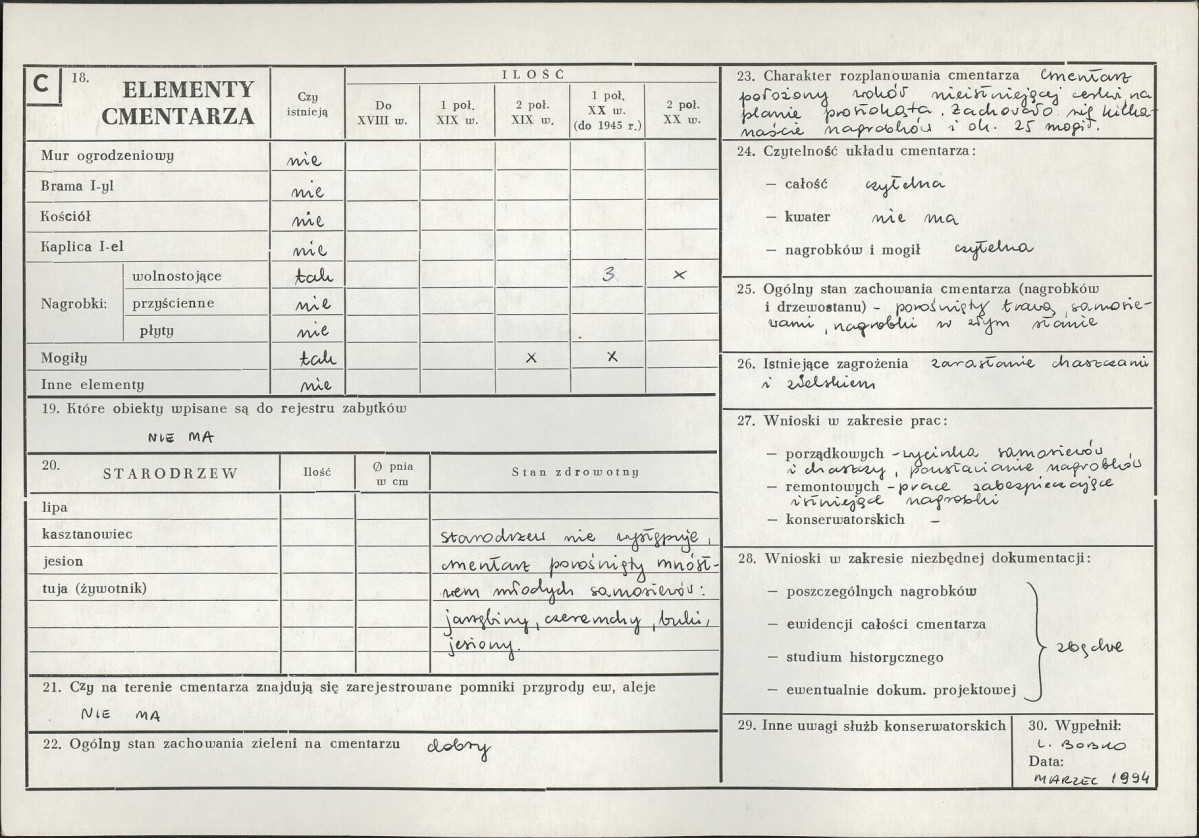 C 18. ELEMENTY CMENTARZA
Czy istnieją
ILOŚĆ
Do XVIII w.
1 poł. XIX w.
2 poł. XIX w.
1 poł. XX w. (do 1945 r.)
2 poł. XX w.
Mur ogrodzeniowy nie
Brama I-yl nie
Kościół nie
Kaplica I-el nie
Nagrobki:
wolnostojące tak 3 x
przyścienne nie
płyty nie
Mogiły tak x x
Inne elementy nie
19. Które obiekty wpisane są do rejestru zabytków
NIE MA
20. STARODRZEW
Ilość
Ø pnia w cm
Stan zdrowotny
lipa
kasztanowiec
jesion
tuja (żywotnik)
starodrzew nie występuje,
cmentarz porośnięty mnóst-
wem młodych samosiewów:
jarzębiny, czeremchy, buki,
jesiony.
21. Czy na terenie cmentarza znajdują się zarejestrowane pomniki przyrody ew, aleje
NIE MA
22. Ogólny stan zachowania zieleni na cmentarzu dobry
23. Charakter rozplanowania cmentarza cmentarz
położony wokół nieistniejącej cerkwi na
planie prostokąta. Zachowało się kilka-
naście nagrobków i ok. 25 mogił.
24. Czytelność układu cmentarza:
— całość czytelna
— kwater nie ma
— nagrobków i mogił czytelna
25. Ogólny stan zachowania cmentarza (nagrobków
i drzewostanu) - porośnięty trawą, samosie-
wami, nagrobki w złym stanie
26. Istniejące zagrożenia zarastanie chaszczami
i zielskiem
27. Wnioski w zakresie prac:
— porządkowych - wycinka samosiewów
i chaszczy, poustawianie nagrobków
— remontowych - prace zabezpieczające
istniejące nagrobki
— konserwatorskich —
28. Wnioski w zakresie niezbędnej dokumentacji:
— poszczególnych nagrobków
— ewidencji całości cmentarza
— studium historycznego
— ewentualnie dokum. projektowej
zbędne
29. Inne uwagi służb konserwatorskich
30. Wypełnił:
L. BOBKO
Data:
MARZEC 1994